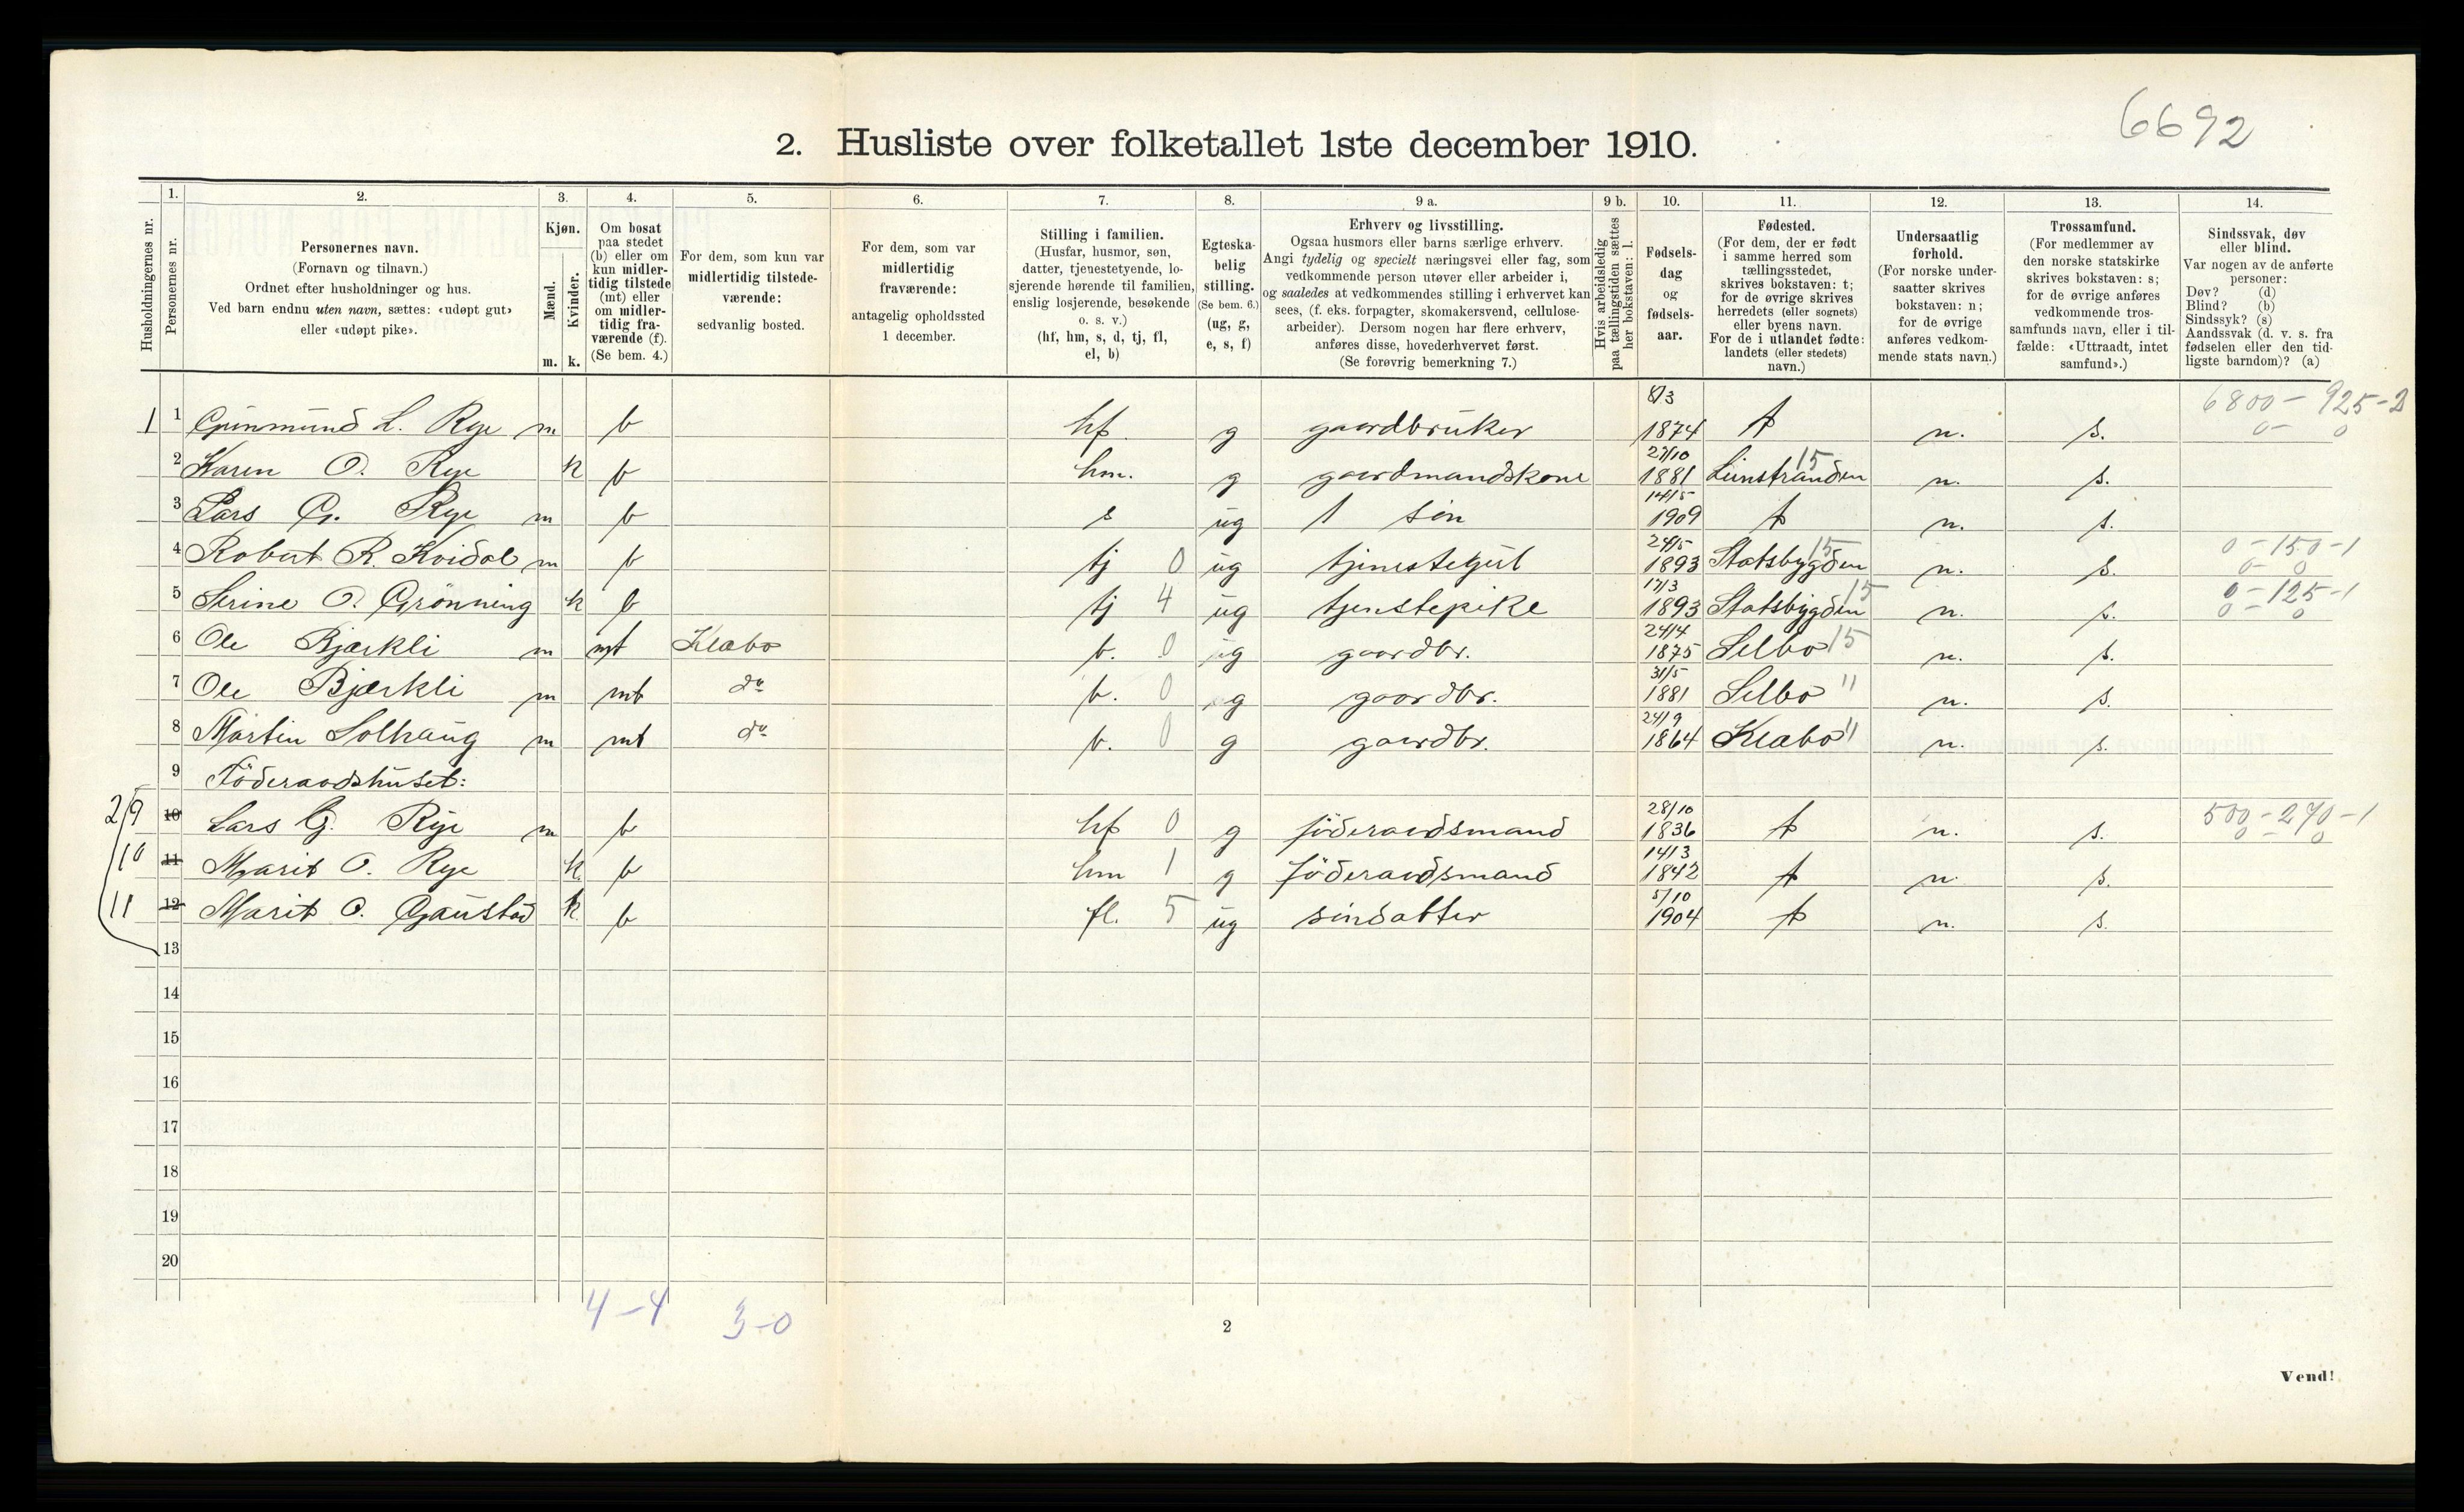 6692
2. Husliste over folketallet 1ste december 1910.
Husholdningernes nr.
1. Personernes nr.
2. Personernes navn. (Fornavn og tilnavn.) Ordnet efter husholdninger og hus. Ved barn endnu uten navn, sættes: «udøpt gut» eller «udøpt pike».
3. Kjøn. Mænd. m. Kvinder. k.
4. Om bosat paa stedet (b) eller om kun midlertidig tilstede (mt) eller om midlertidig fraværende (f). (Se bem. 4.)
5. For dem, som kun var midlertidig tilstedeværende: sedvanlig bosted.
6. For dem, som var midlertidig fraværende: antagelig opholdssted 1 december.
7. Stilling i familien. (Husfar, husmor, søn, datter, tjenestetyende, losjerende hørende til familien, enslig losjerende, besøkende o. s. v.) (hf, hm, s, d, tj, fl, el, b)
8. Egteskabelig stilling. (Se bem. 6.) (ug, g, e, s, f)
9 a. Erhverv og livsstilling. Ogsaa husmors eller barns særlige erhverv. Angi tydelig og specielt næringsvei eller fag, som vedkommende person utøver eller arbeider i, og saaledes at vedkommendes stilling i erhvervet kan sees, (f. eks. forpagter, skomakersvend, cellulosearbeider). Dersom nogen har flere erhverv, anføres disse, hovederhvervet først. (Se forøvrig bemerkning 7.)
9 b. Hvis arbeidsledig paa tællingstiden sættes her bokstaven: l.
10. Fødselsdag og fødselsaar.
11. Fødested. (For dem, der er født i samme herred som tællingsstedet, skrives bokstaven: t; for de øvrige skrives herredets (eller sognets) eller byens navn. For de i utlandet fødte: landets (eller stedets) navn.)
12. Undersaatlig forhold. (For norske undersaatter skrives bokstaven: n; for de øvrige anføres vedkommende stats navn.)
13. Trossamfund. (For medlemmer av den norske statskirke skrives bokstaven: s; for de øvrige anføres vedkommende trossamfunds navn, eller i tilfælde: «Uttraadt, intet samfund».)
14. Sindssvak, døv eller blind. Var nogen av de anførte personer: Døv? (d) Blind? (b) Sindssyk? (s) Aandssvak (d. v. s. fra fødselen eller den tidligste barndom)? (a)
1 1 Gunmund L. Rye m b hf. g gaardbruker 8/3 1874 t n. s. 6800 - 925-2 0 - 0
2 Karen O. Rye k b hm. g gaardmandskone 27/10 1881 Leinstranden 15 n. s.
3 Lars G. Rye m b s ug 1 søn 14/5 1909 t n. s.
4 Robert R. Kvidal m b tj 0 ug tjenestegut 24/5 1893 Statsbygden 15 n. s. 0-150-1 0- 0
5 Serine O. Grönning k b tj 4 ug tjenstepike 17/3 1893 Statsbygden 15 n. s. 0-125-1 0- 0
6 Ole Bjærkli m mt Klæbo b. 0 ug gaardbr. 24/4 1875 Selbo 15 n. s.
7 Ole Bjærkli m mt do b. 0 g gaardbr. 31/5 1881 Selbo " n. s.
8 Martin Solhaug m mt do b. 0 g gaardbr. 24/9 1864 Klæbo " n. s.
9 Föderaadshuset:
2 9 10 Lars G. Rye m b hf 0 g föderaadsmand 28/10 1836 t n. s. 500-270-1 0 - 0
10 11 Marit O. Rye k b hm 1 g föderaadsmand 14/3 1842 t n. s.
11 12 Marit O. Gaustad k b fl. 5 ug sindatter 5/10 1904 t n. s.
13
14
15
16
17
18
19
20
4-4 3-0
2
Vend!